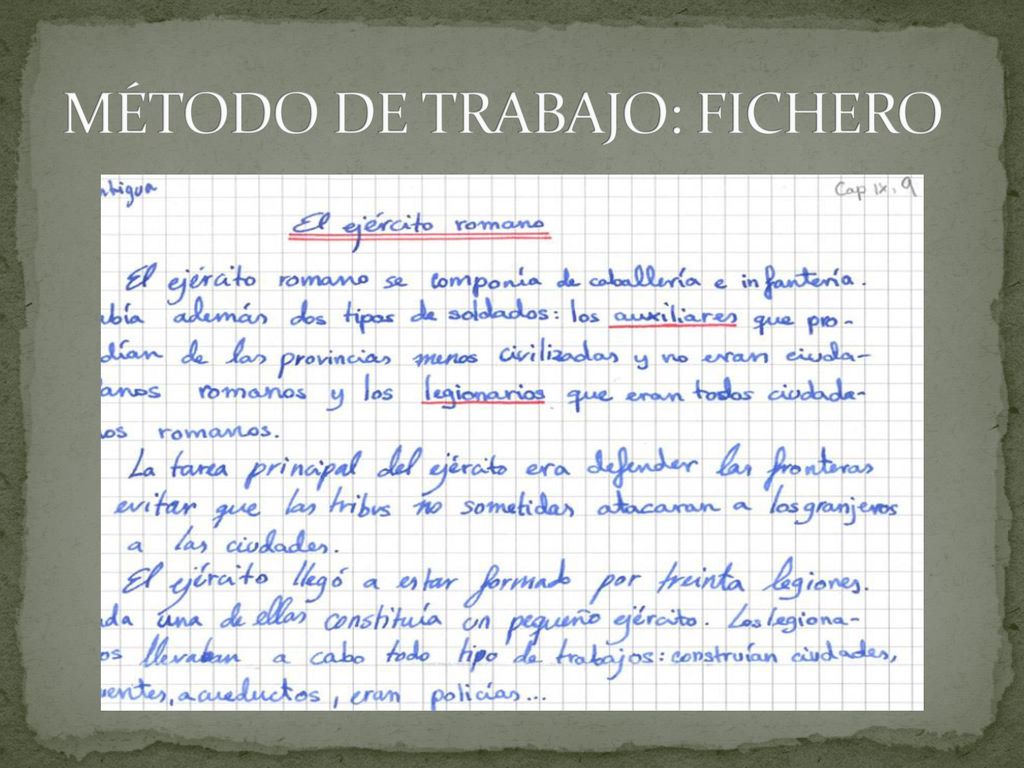 MÉTODO DE TRABAJO: FICHERO
ntigua
Cap IX, 9
El ejército romano
El ejército romano se componía de caballería e infantería.
abía además dos tipos de soldados: los auxiliares que pro-
dían de las provincias menos civilizadas y no eran ciuda-
anos romanos y los legionarios que eran todos ciudada-
os romanos.
La tarea principal del ejército era defender las fronteras
evitar que las tribus no sometidas atacaran a los granjeros
a las ciudades.
El ejército llegó a estar formado por treinta legiones.
da una de ellas constituía un pequeño ejército. Los legiona-
os llevaban a cabo todo tipo de trabajos: construían ciudades,
uentes, acueductos, eran policías...